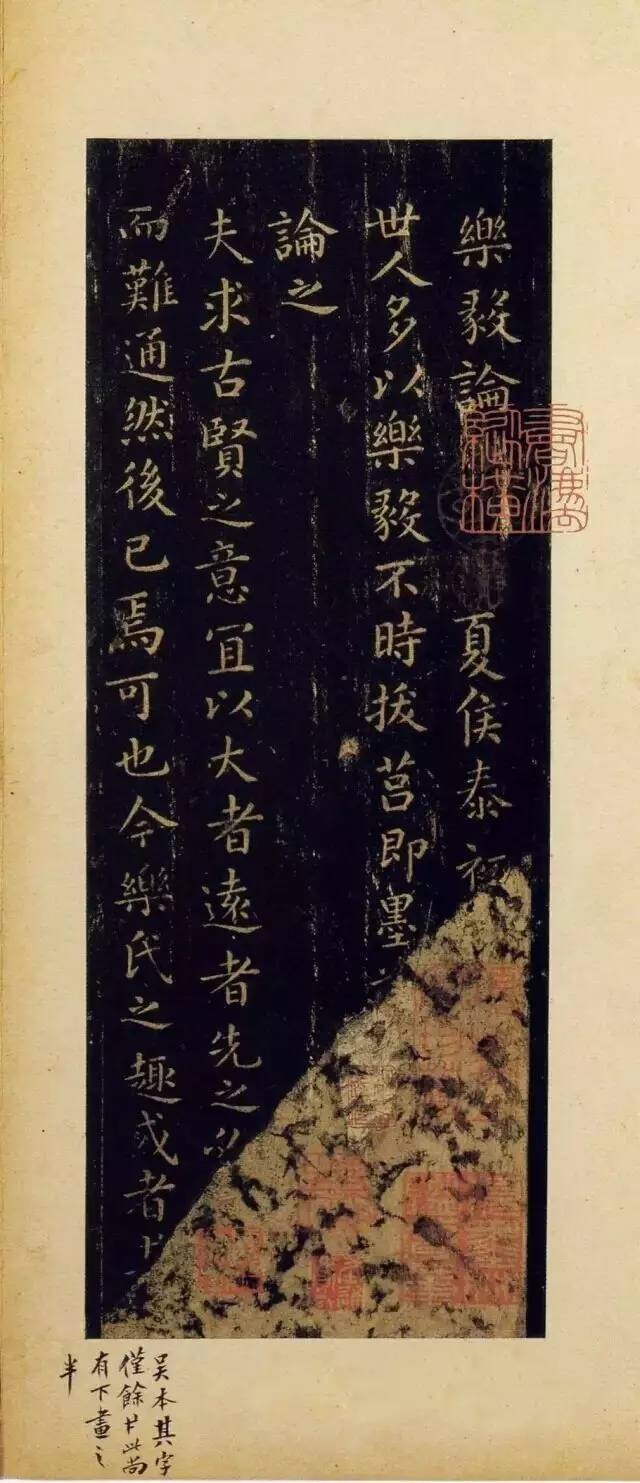 樂毅論 夏侯泰初
世人多以樂毅不時拔莒即墨
論之
夫求古賢之意宜以大者遠者先之必
而難通然後已焉可也今樂氏之趣或者
吴本其字
僅餘㠯此尚
有下畫之
半